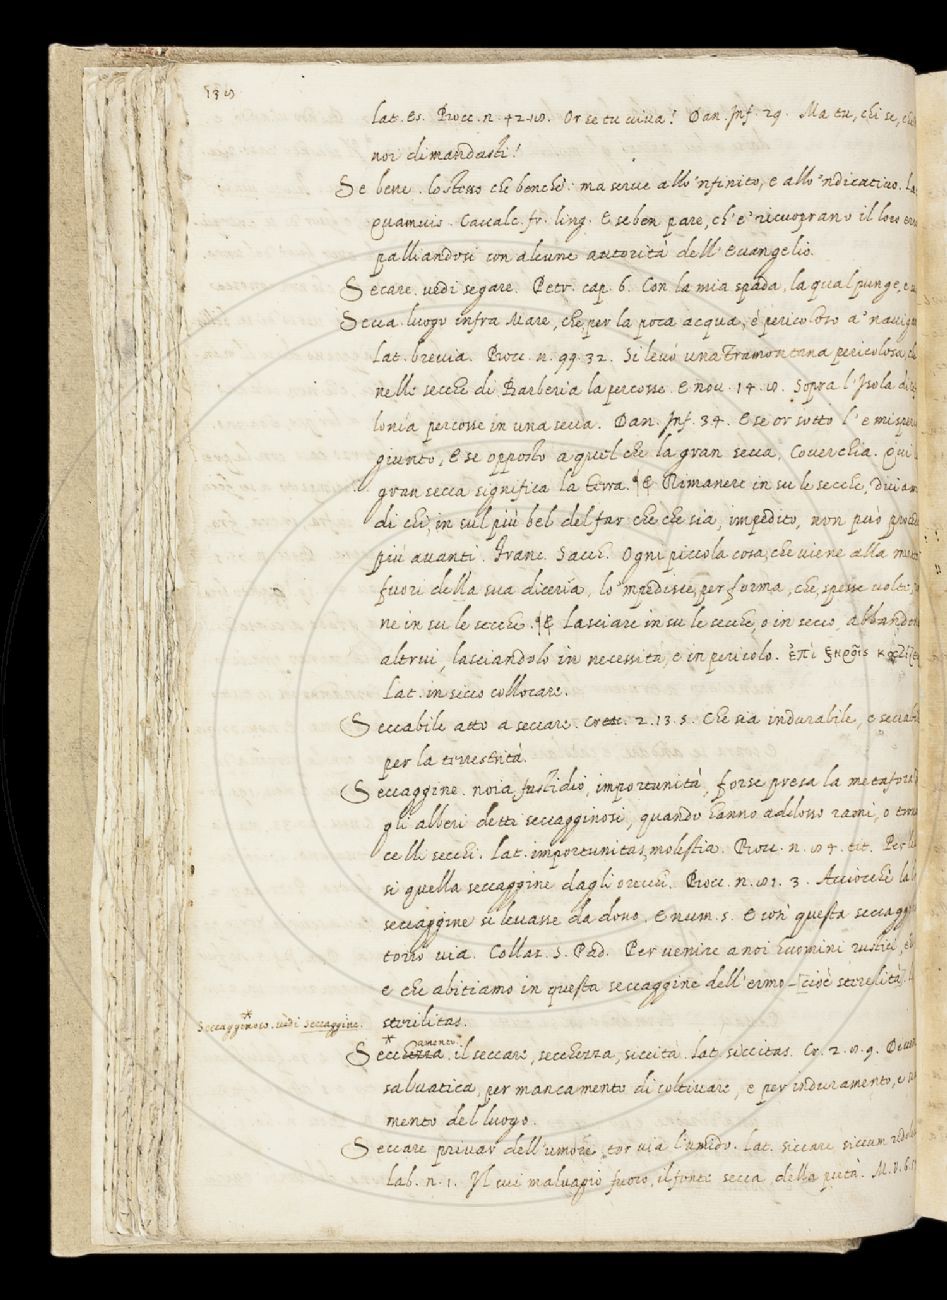 lat. es. Bocc. n. 42. 10. Or se tu viva! Dan. Inf. 29. Ma tu, chi se, che
noi dimandasti!
Se bene. lo stesso che benchè: ma serve allo 'nfinito, e allo 'ndicativo. La
quamuis. Cavalc. fr. ling. E se ben pare, ch' e' ricuoprano il loro
palliandosi con alcune autorità dell' Evangelio.
Secare. vedi segare. Petr. cap. 6. Con la mia spada, la qual punge, e
Secca. luogo infra Mare, che per la poca acqua, è pericoloso a' navig
lat. brevia. Bocc. n. 99. 32. Si levò una Tramontana pericolosa, ch
nelle secche di Barberia la percosse. E nov. 14. 10. Sopra l' Isola di
lonia percosse in una secca. Dan. Inf. 34. E se or sotto l' emisper
giunto, E se opposto a quel che la gran secca, Coverchia. Qui
gran secca significa la terra. ¶ E Rimanere in su le secche, diciam
di chi, in sul più bel del far che che sia, impedito, non può proced
più avanti. Franc. Sacch. Ogni piccola cosa, che viene alla
fuori della sua diceria, lo 'mpedisce, per forma, che, spesse volte,
ne in su le secche. ¶ E Lasciare in su le secche, o in secco, abbandon
altrui, lasciandolo in necessità, e in pericolo. ἐπὶ
Lat. in secco collocare.
Seccabile atto a seccare. Cresc. 2. 13. 5. Che sia indurabile, e seccab
per la terrestrità.
Seccaggine. noia, fastidio, importunità, forse presa la metafora
gli alberi detti seccagginosi, quando hanno addosso rami, o
celli secchi. lat. importunitas, molestia. Bocc. n. 64. tit. Per
si quella seccaggine dagli orecchi. Bocc. n. 81. 3. Acciocchè la
seccaggine si levasse da dosso. E num. 5. E così questa seccaggi
torrò via. Collaz. S. Pad. Per venire a noi huomini rustici, e
e che abitiamo in questa seccaggine dell' ermo [cioè sterilità]
* Seccagginoso. vedi seccaggine.
sterilitas.
* Secchezza amento. il seccare, secchezza, siccità. lat. siccitas. Cr. 2. 8. 9. Diven
salvatica, per mancamento di coltivare, e per induramento, e
mento del luogo.
Seccare privar dell' umore, tor via l' umido. lat. siccare siccum
Lab. n. 1. Il cui malvagio fuoco, il fonte secca, della pietà. M. V. 6.